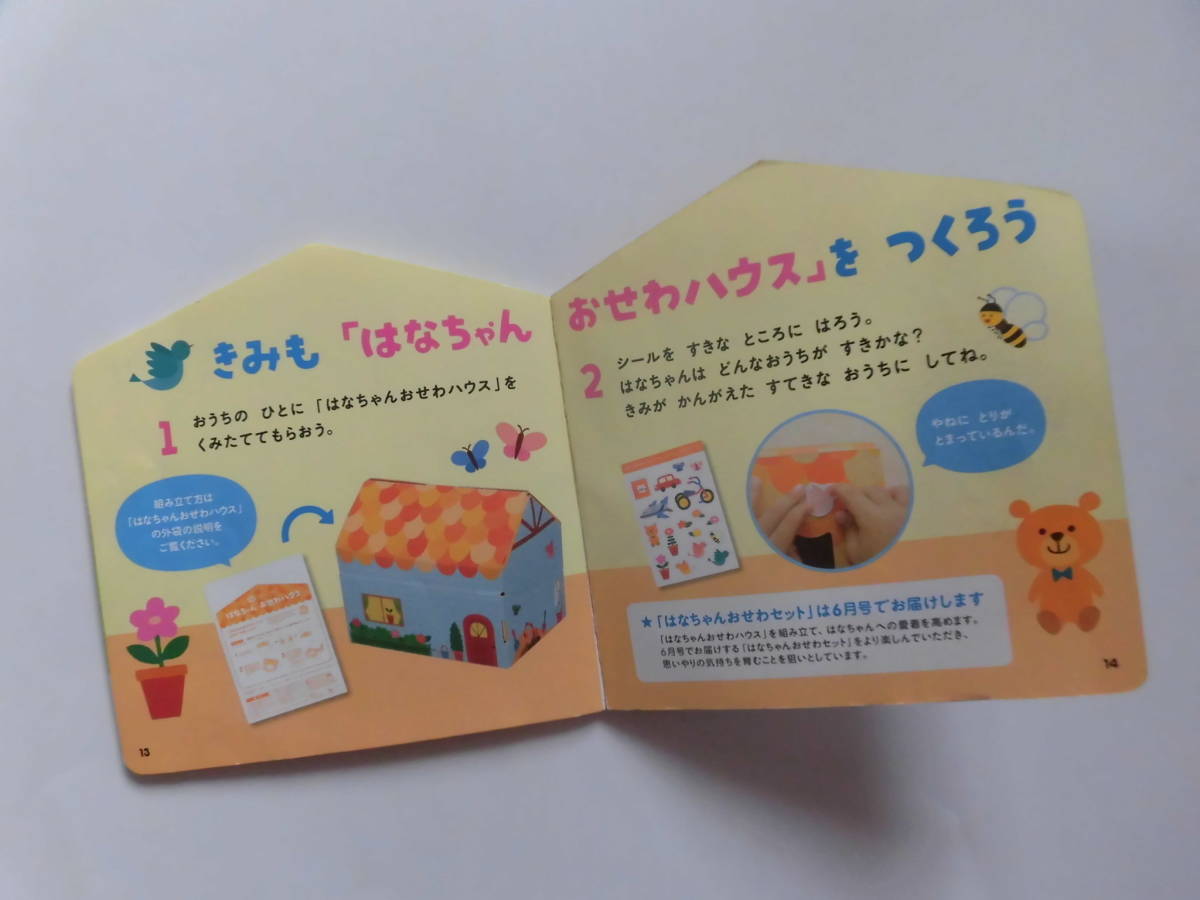 きみも 「はなちゃん おせわハウス」を つくろう
1 おうちの ひとに 「はなちゃんおせわハウス」を
くみたててもらおう。
組み立て方は
「はなちゃんおせわハウス」
の外袋の説明を
ご覧ください。
はなちゃん おせわハウス
13
2 シールを すきな ところに はろう。
はなちゃんは どんなおうちが すきかな？
きみが かんがえた すてきな おうちに してね。
やねに とりが
とまっているんだ。
★「はなちゃんおせわセット」は6月号でお届けします
「はなちゃんおせわハウス」を組み立て、はなちゃんへの愛着を高めます。
6月号でお届けする「はなちゃんおせわセット」をより楽しんでいただき、
思いやりの気持ちを育むことを狙いとしています。
14